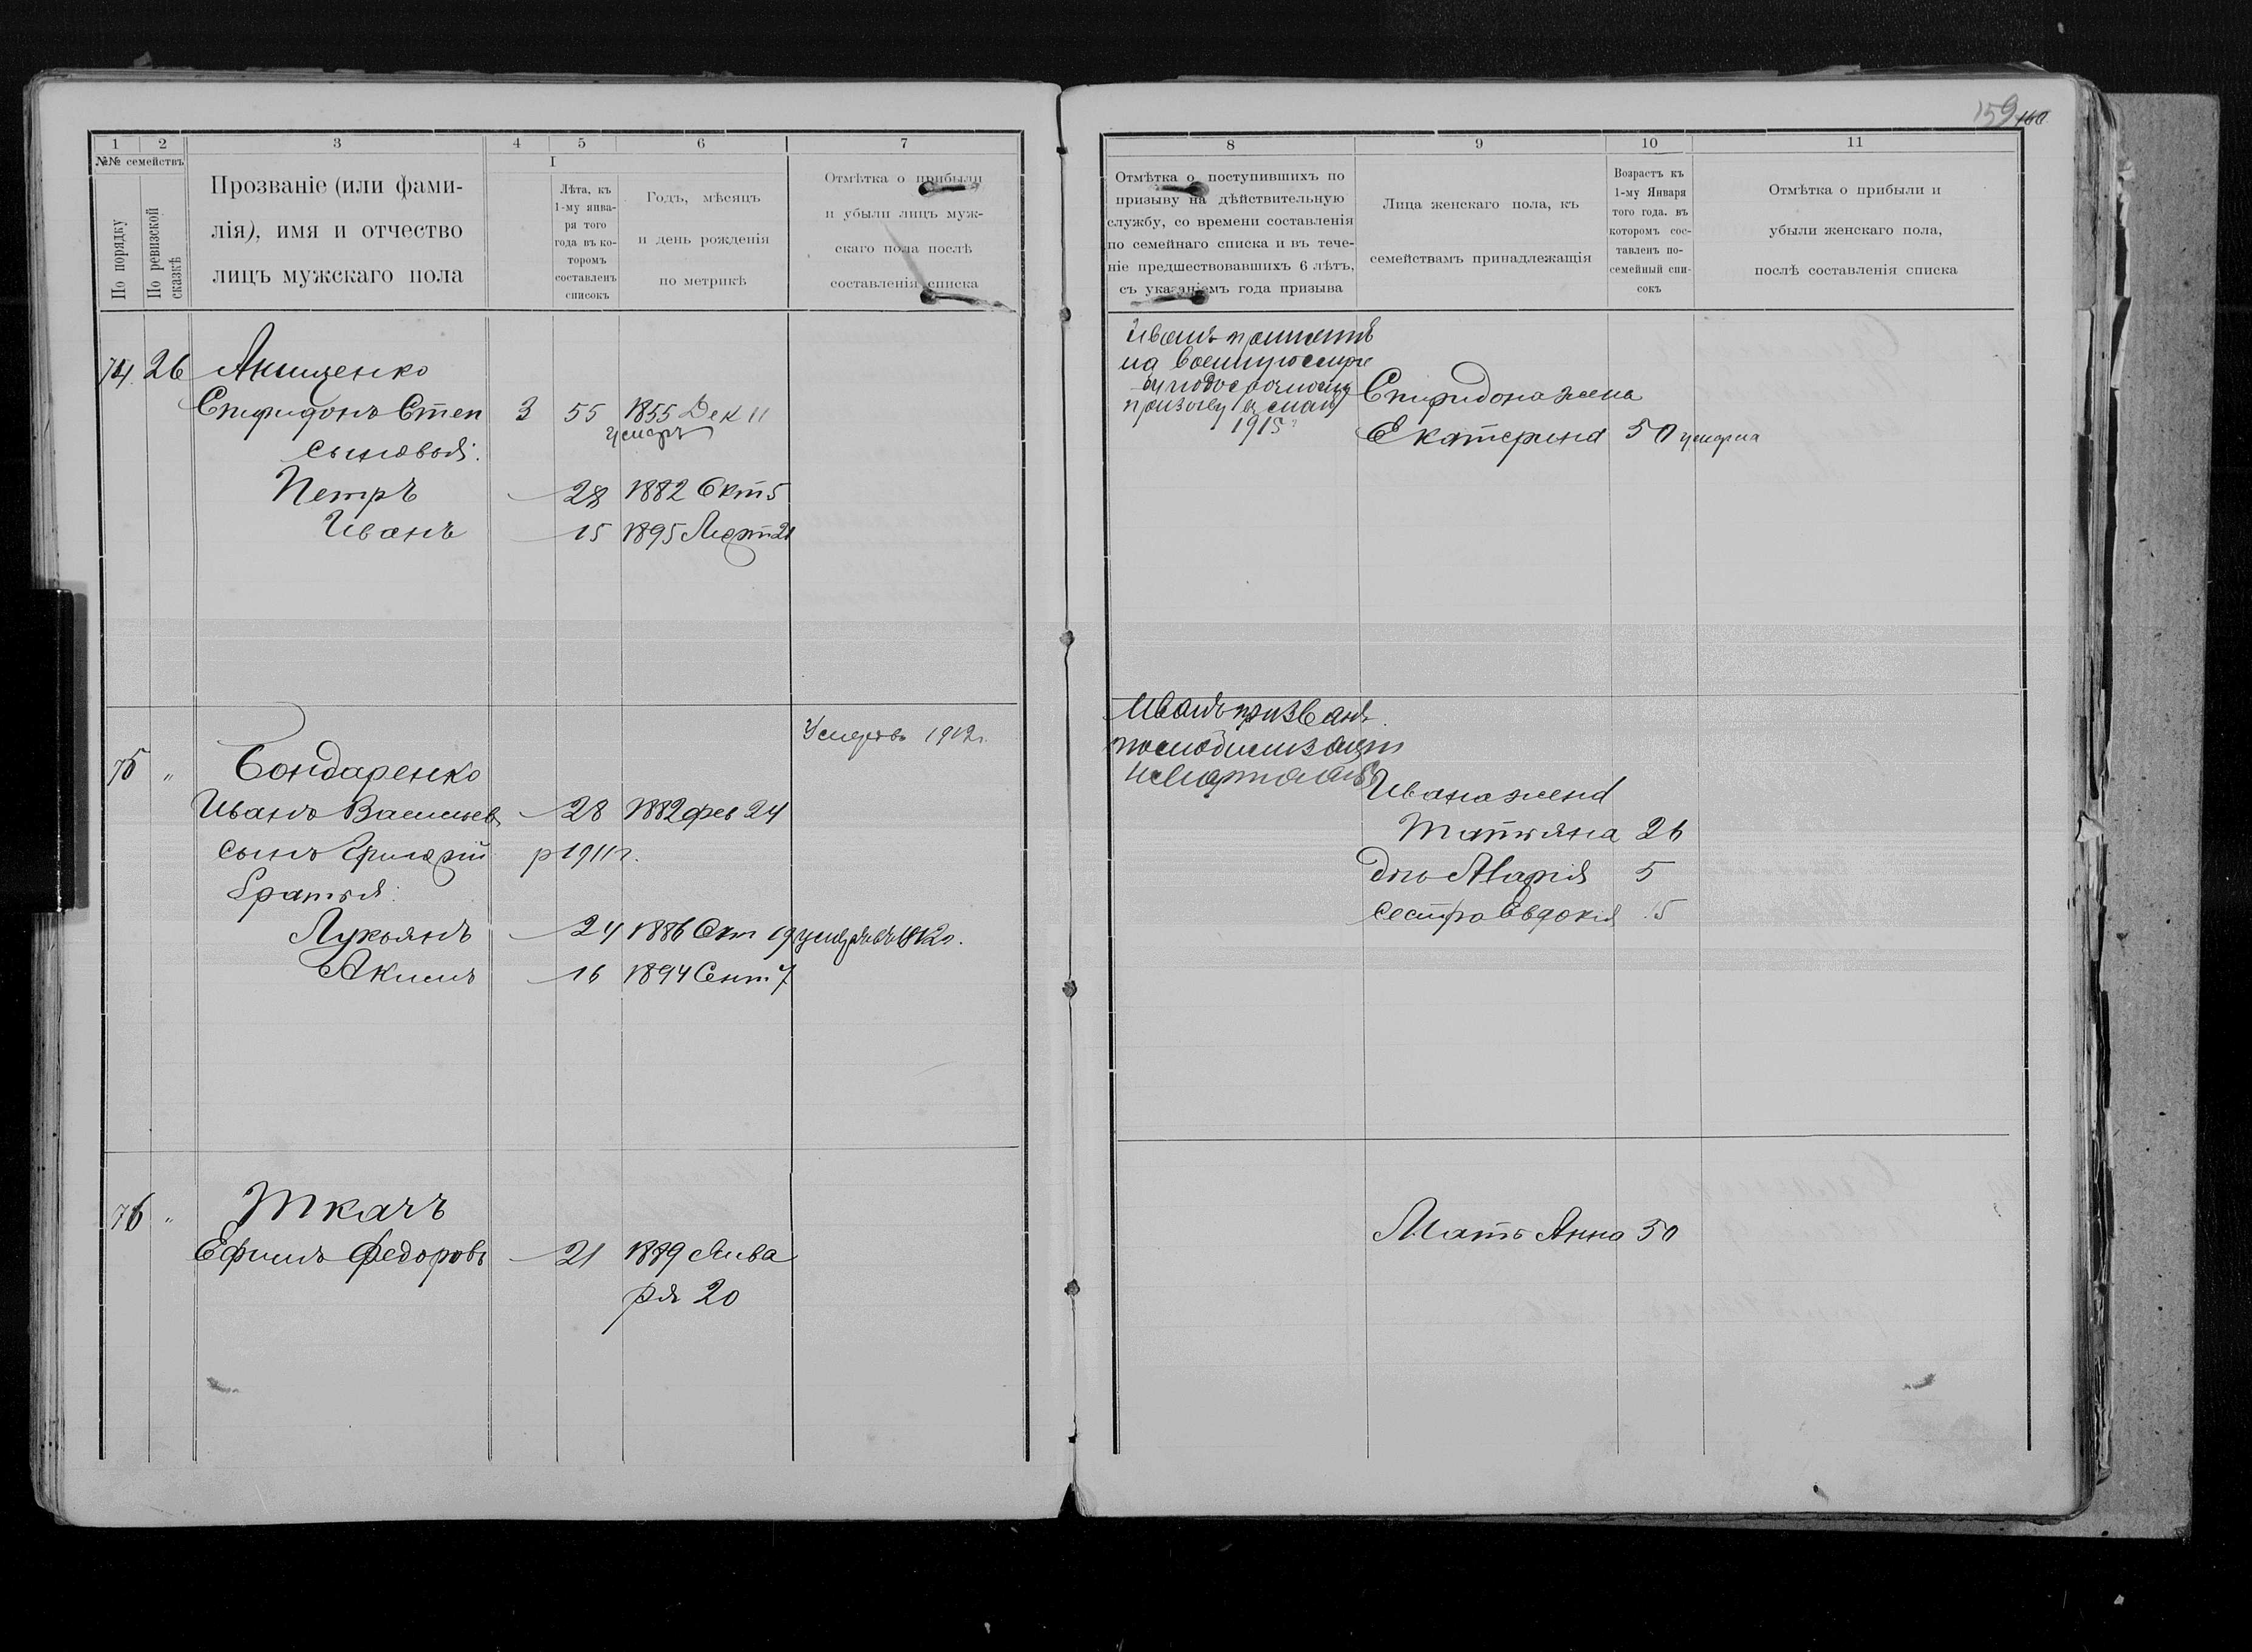 159 160
1 2 3 4 5 6 7
№№ семействъ
По порядку
По ревизской сказкѣ
Прозваніе (или фами-
лія), имя и отчество
лицъ мужскаго пола
I
Лѣта, къ
1-му янва-
ря того
года въ ко-
торомъ
составленъ
списокъ
Годъ, мѣсяцъ
и день рожденія
по метрикѣ
Отмѣтка о прибыли
и убыли лицъ муж-
скаго пола послѣ
составленія списка
74 26 Анищенко
Спиридонъ Степ 3 55 1855 Дек 11
умеръ
сыновья:
Петръ 28 1882 Окт 5
Иванъ 15 1895 Март 21
Умеръ въ 1912 г.
75 „ Бондаренко
Иванъ Васильев 28 1882 фев 24
сынъ Григорій р 1911 г.
братья:
Лукьянъ 24 1886 Окт 19 умеръ въ 1912 г.
Акимъ 16 1894 Сент 7
76 „ Ткачъ
Ефимъ Федоровъ 21 1889 Янва
ря 20
8 9 10 11
Отмѣтка о поступившихъ по
призыву на дѣйствительную
службу, со времени составленія
по семейнаго списка и въ тече-
ніе предшествовавшихъ 6 лѣтъ,
съ указаніемъ года призыва
Лица женскаго пола, къ
семействамъ принадлежащія
Возрастъ къ
1-му Января
того года. въ
которомъ сос-
тавленъ по-
семейный спи-
сокъ
Отмѣтка о прибыли и
убыли женскаго пола,
послѣ составленія списка
Иванъ принятъ
на военную служ
бу по досрочному
призыву в маѣ
1915 г
Спиридона жена
Екатерина 50 умерла
Иванъ призванъ
по мобилизаціи
Ивана жена
Татьяна 26
дочь Марія 5
сестра Евдокія 15
Мать Анна 50